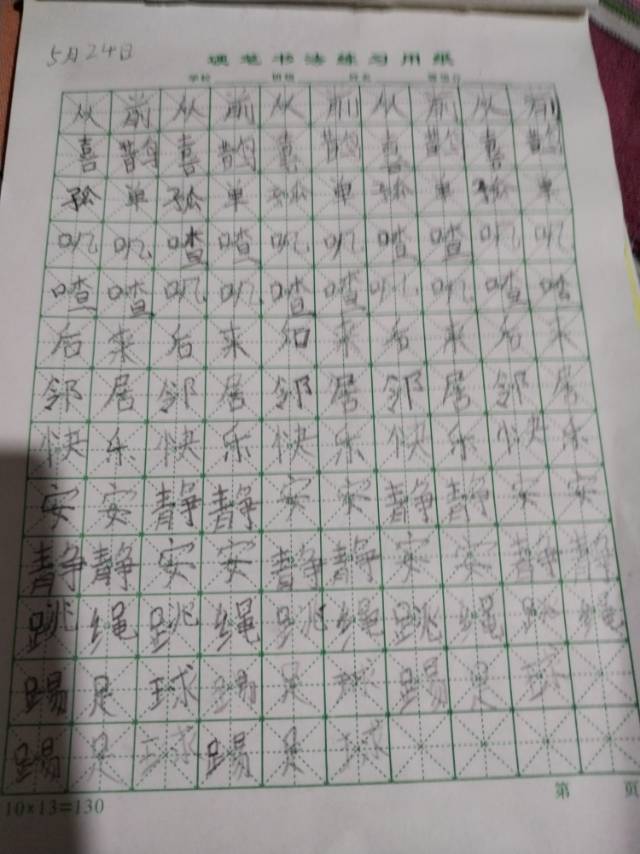 5月24日
硬笔书法练习用纸
学校 班级 姓名
从前从前从前从前从前
喜鹊喜鹊喜鹊喜鹊喜鹊
孤单孤单孤单孤单孤单
叽叽喳喳叽叽喳喳叽叽
喳喳叽叽喳喳叽叽喳喳
后来后来后来后来后来
邻居邻居邻居邻居邻居
快乐快乐快乐快乐快乐
安安静静安安静静安安
静静安安静静安安静静
跳绳跳绳跳绳跳绳跳绳
踢足球踢足球踢足球
踢足球踢足球
10×13=130
第 页